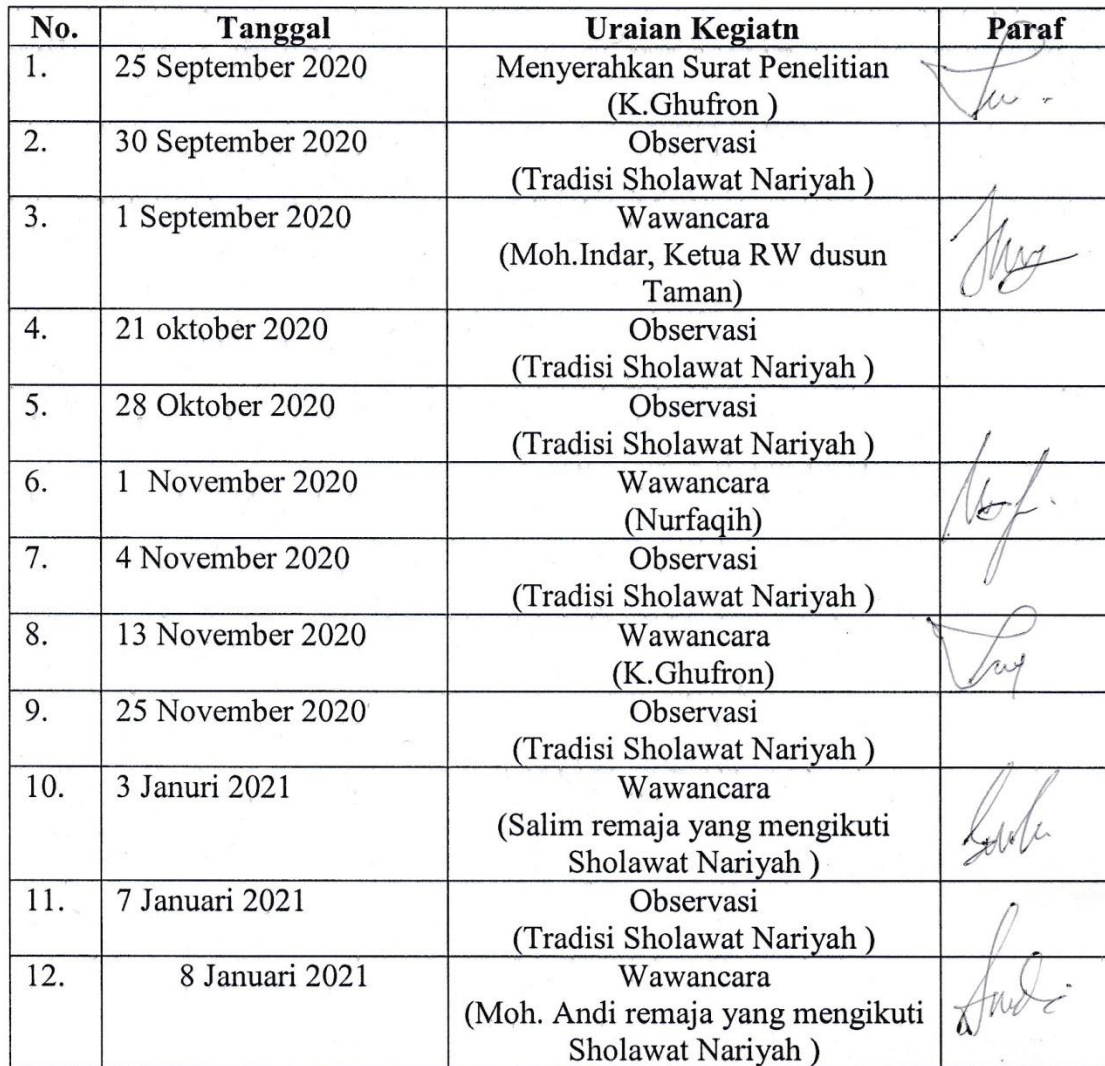 No. Tanggal Uraian Kegiatn Paraf
1. 25 September 2020 Menyerahkan Surat Penelitian
(K.Ghufron )
2. 30 September 2020 Observasi
(Tradisi Sholawat Nariyah )
3. 1 September 2020 Wawancara
(Moh.Indar, Ketua RW dusun
Taman)
4. 21 oktober 2020 Observasi
(Tradisi Sholawat Nariyah )
5. 28 Oktober 2020 Observasi
(Tradisi Sholawat Nariyah )
6. 1 November 2020 Wawancara
(Nurfaqih)
7. 4 November 2020 Observasi
(Tradisi Sholawat Nariyah )
8. 13 November 2020 Wawancara
(K.Ghufron)
9. 25 November 2020 Observasi
(Tradisi Sholawat Nariyah )
10. 3 Januri 2021 Wawancara
(Salim remaja yang mengikuti
Sholawat Nariyah )
11. 7 Januari 2021 Observasi
(Tradisi Sholawat Nariyah )
12. 8 Januari 2021 Wawancara
(Moh. Andi remaja yang mengikuti
Sholawat Nariyah )